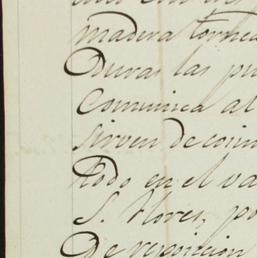 madera torne
Duras las pu
Comunica al
sirven de coim
todo en el va
S. Flores, po
De reposicion